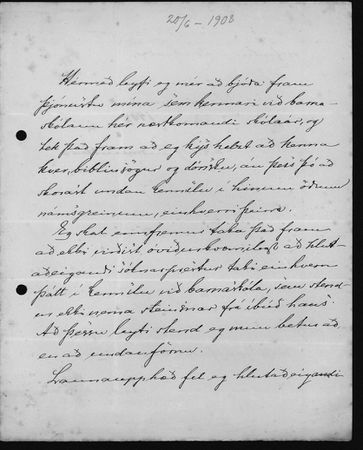 20/6 - 1908
Hérmað leyfi eg mér að bjóða fram
þjónustu mína sem kennari við barna-
skólann hér næstkomandi skólaár, og
tek það fram að eg kýs helzt að kenna
kver, biblíusögur og dönsku, án þess þó að
skorast undan kenslu í hinum öðrum
námsgreinum, einhverri þeirra.
Eg skal ennfremur taka það fram
að ekki virðist óviðurkvæmilegt að hlut-
aðeigandi sóknarprestur taki einhvern
þátt í kenslu við barnaskóla, sem stend-
ur ekki nema steinsnar frá íbúð hans.
Að þessu leyti stend eg mun betur að
en að undanförnu.
Launaupphæð fel eg hlutaðeigandi